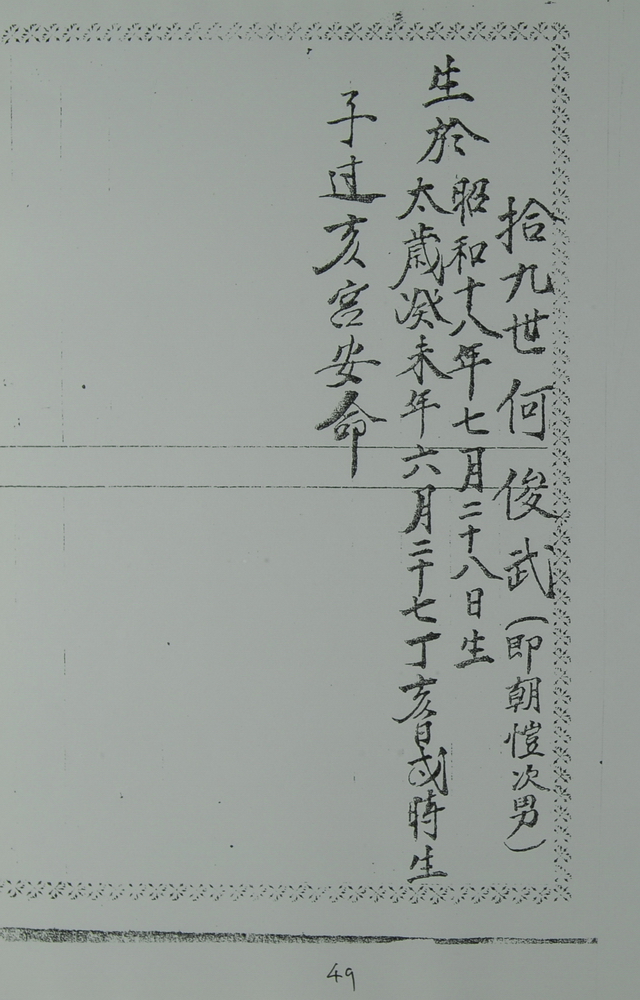 拾九世何俊武(即朝愷次男)
生於
昭和十八年七月二十八日生
太歲癸未年六月二十七丁亥日戌時生
子过亥宮安命
49